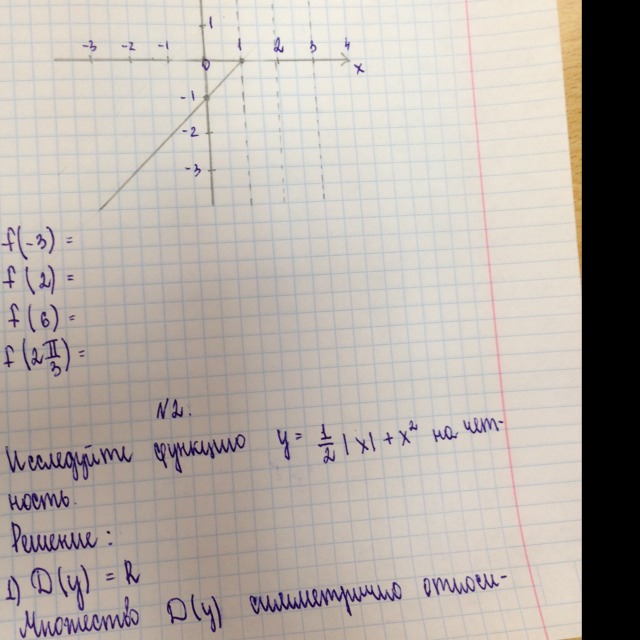 1
-3 -2 -1 0 1 2 3 4
x
-1
-2
-3
f(-3) =
f(2) =
f(6) =
f(2π/3) =
N2.
Исследуйте функцию y = 1/2 |x| + x² на чет-
ность.
Решение:
1) D(y) = R
Множество D(y) симметрично относи-